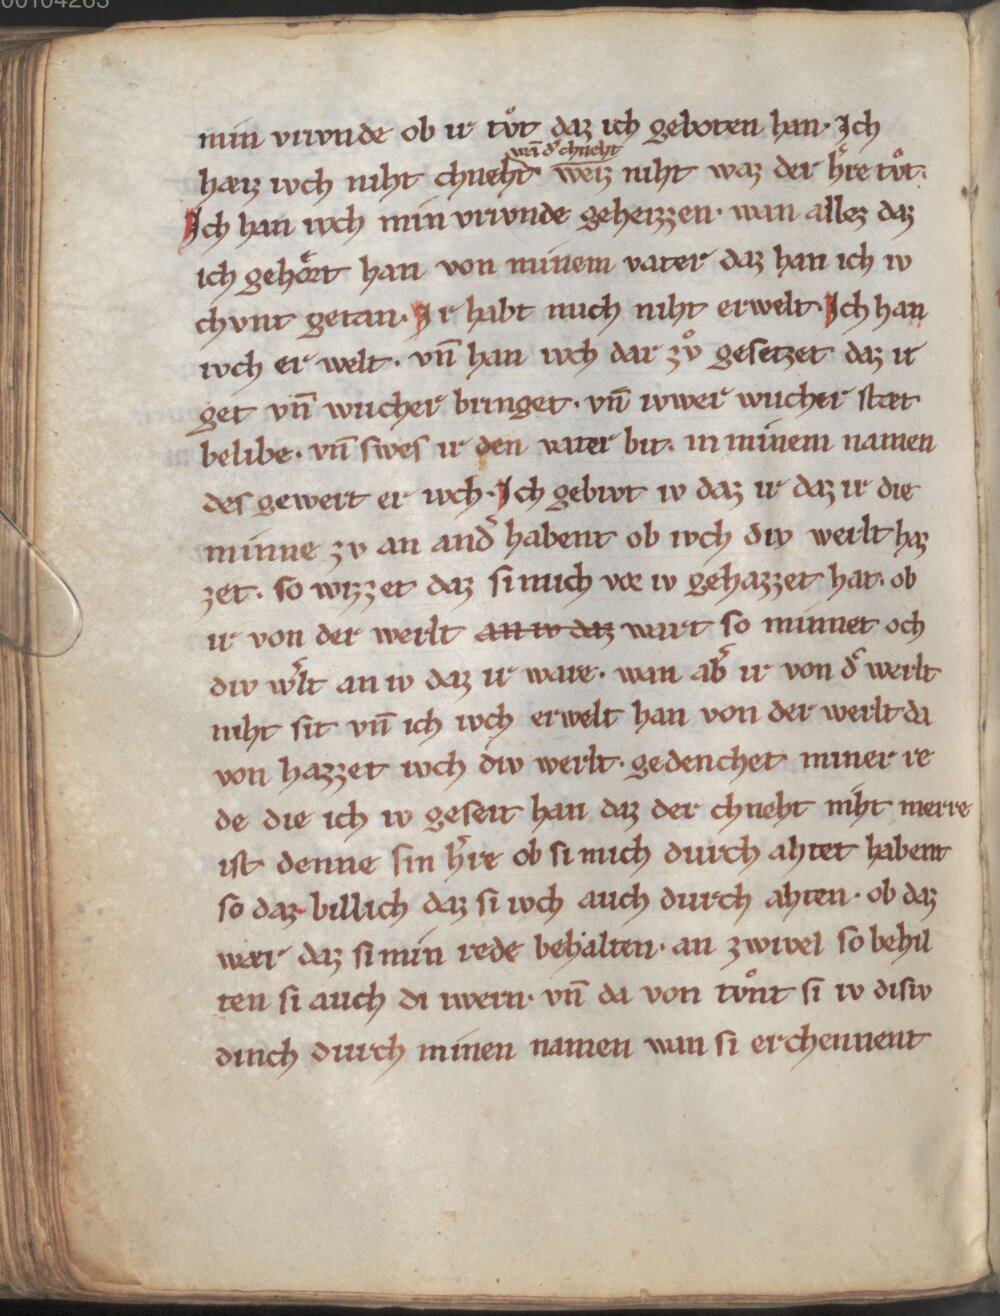 00104263
min vrivnde ob ir tvͦt daz ich geboten han· Ich
wañ dͤ chneht
haiz ivch niht chneht· weiz niht waz der hͤre tvͦt·
Ich han ivch min vrivnde geheizzen· wan allez daz
ich gehoͤrt han von minem vater daz han ich iv
chvnt getan· Ir habt mich niht erwelt· Ich han
ivch er welt· vñ han ivch dar zvͦ gesetzet daz ir
get vñ wucher bringet· vñ ivwer wucher stæt
belibe· vñ swes ir den vater bit· in minem namen
des gewert er ivch· Ich gebivt iv daz ir daz ir die
minne zv an andͤ habent ob ivch div werlt haz
zet· so wizzet daz si mich vor iv gehazzet hat· ob
ir von der werlt an iv daz wart so minnet och
div wͤlt an iv daz ir ware· wan abͤ ir von dͤ werlt
niht sit vñ ich ivch erwelt han von der werlt da
von hazzet ivch div werlt· gedenchet miner re
de die ich iv geseit han daz der chneht niht merre
ist denne sin hͤre ob si mich durch ahtet habent
so daz billich daz si ivch auch durch ahten· ob daz
wær daz si min rede behalten· an zwivel so behil
ten si auch di iwern· vñ da von tvͦnt si iv disiv
dinch durch minen namen wan si erchennent